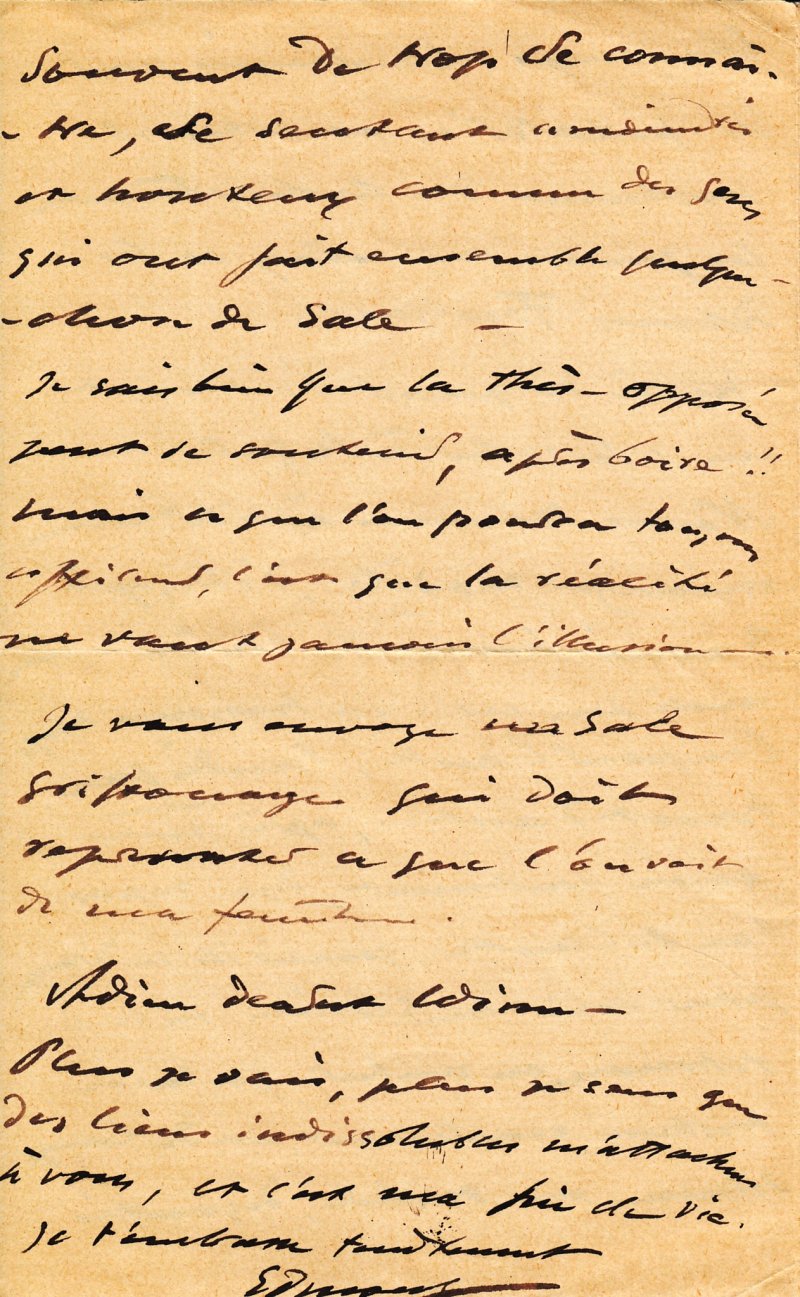 souvent de trop se connaî-
-tre, se sentant
et honteux comme des gens
qui ont fait ensemble quelque
-chose de sale —
Je sais bien que la thèse opposée
peut se soutenir, après boire !!
mais ce que l'on pourra toujours
, c'est que la réalité
ne vaut jamais l'illusion —.
Je vous envoye ma sale
griffonnage qui doit
representer ce que l'on voit
de ma fenêtre.
Adieu dearest Winn —
Plus je vais, plus je sens que
des liens indissolubles m'attachent
à vous, et c'est ma fin de vie.
Je t'embrasse tendrement
Edmond